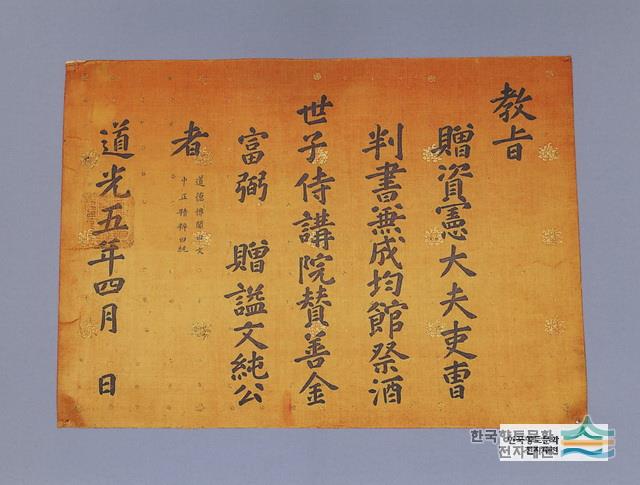 教旨
贈資憲大夫吏曹
判書兼成均館祭酒
世子侍講院賛善金
富弼 贈諡文純公
者
道德博聞曰文
中正精粹曰純
道光五年四月 日
한국향토문화
전자대전
한국향토문화
전자대전